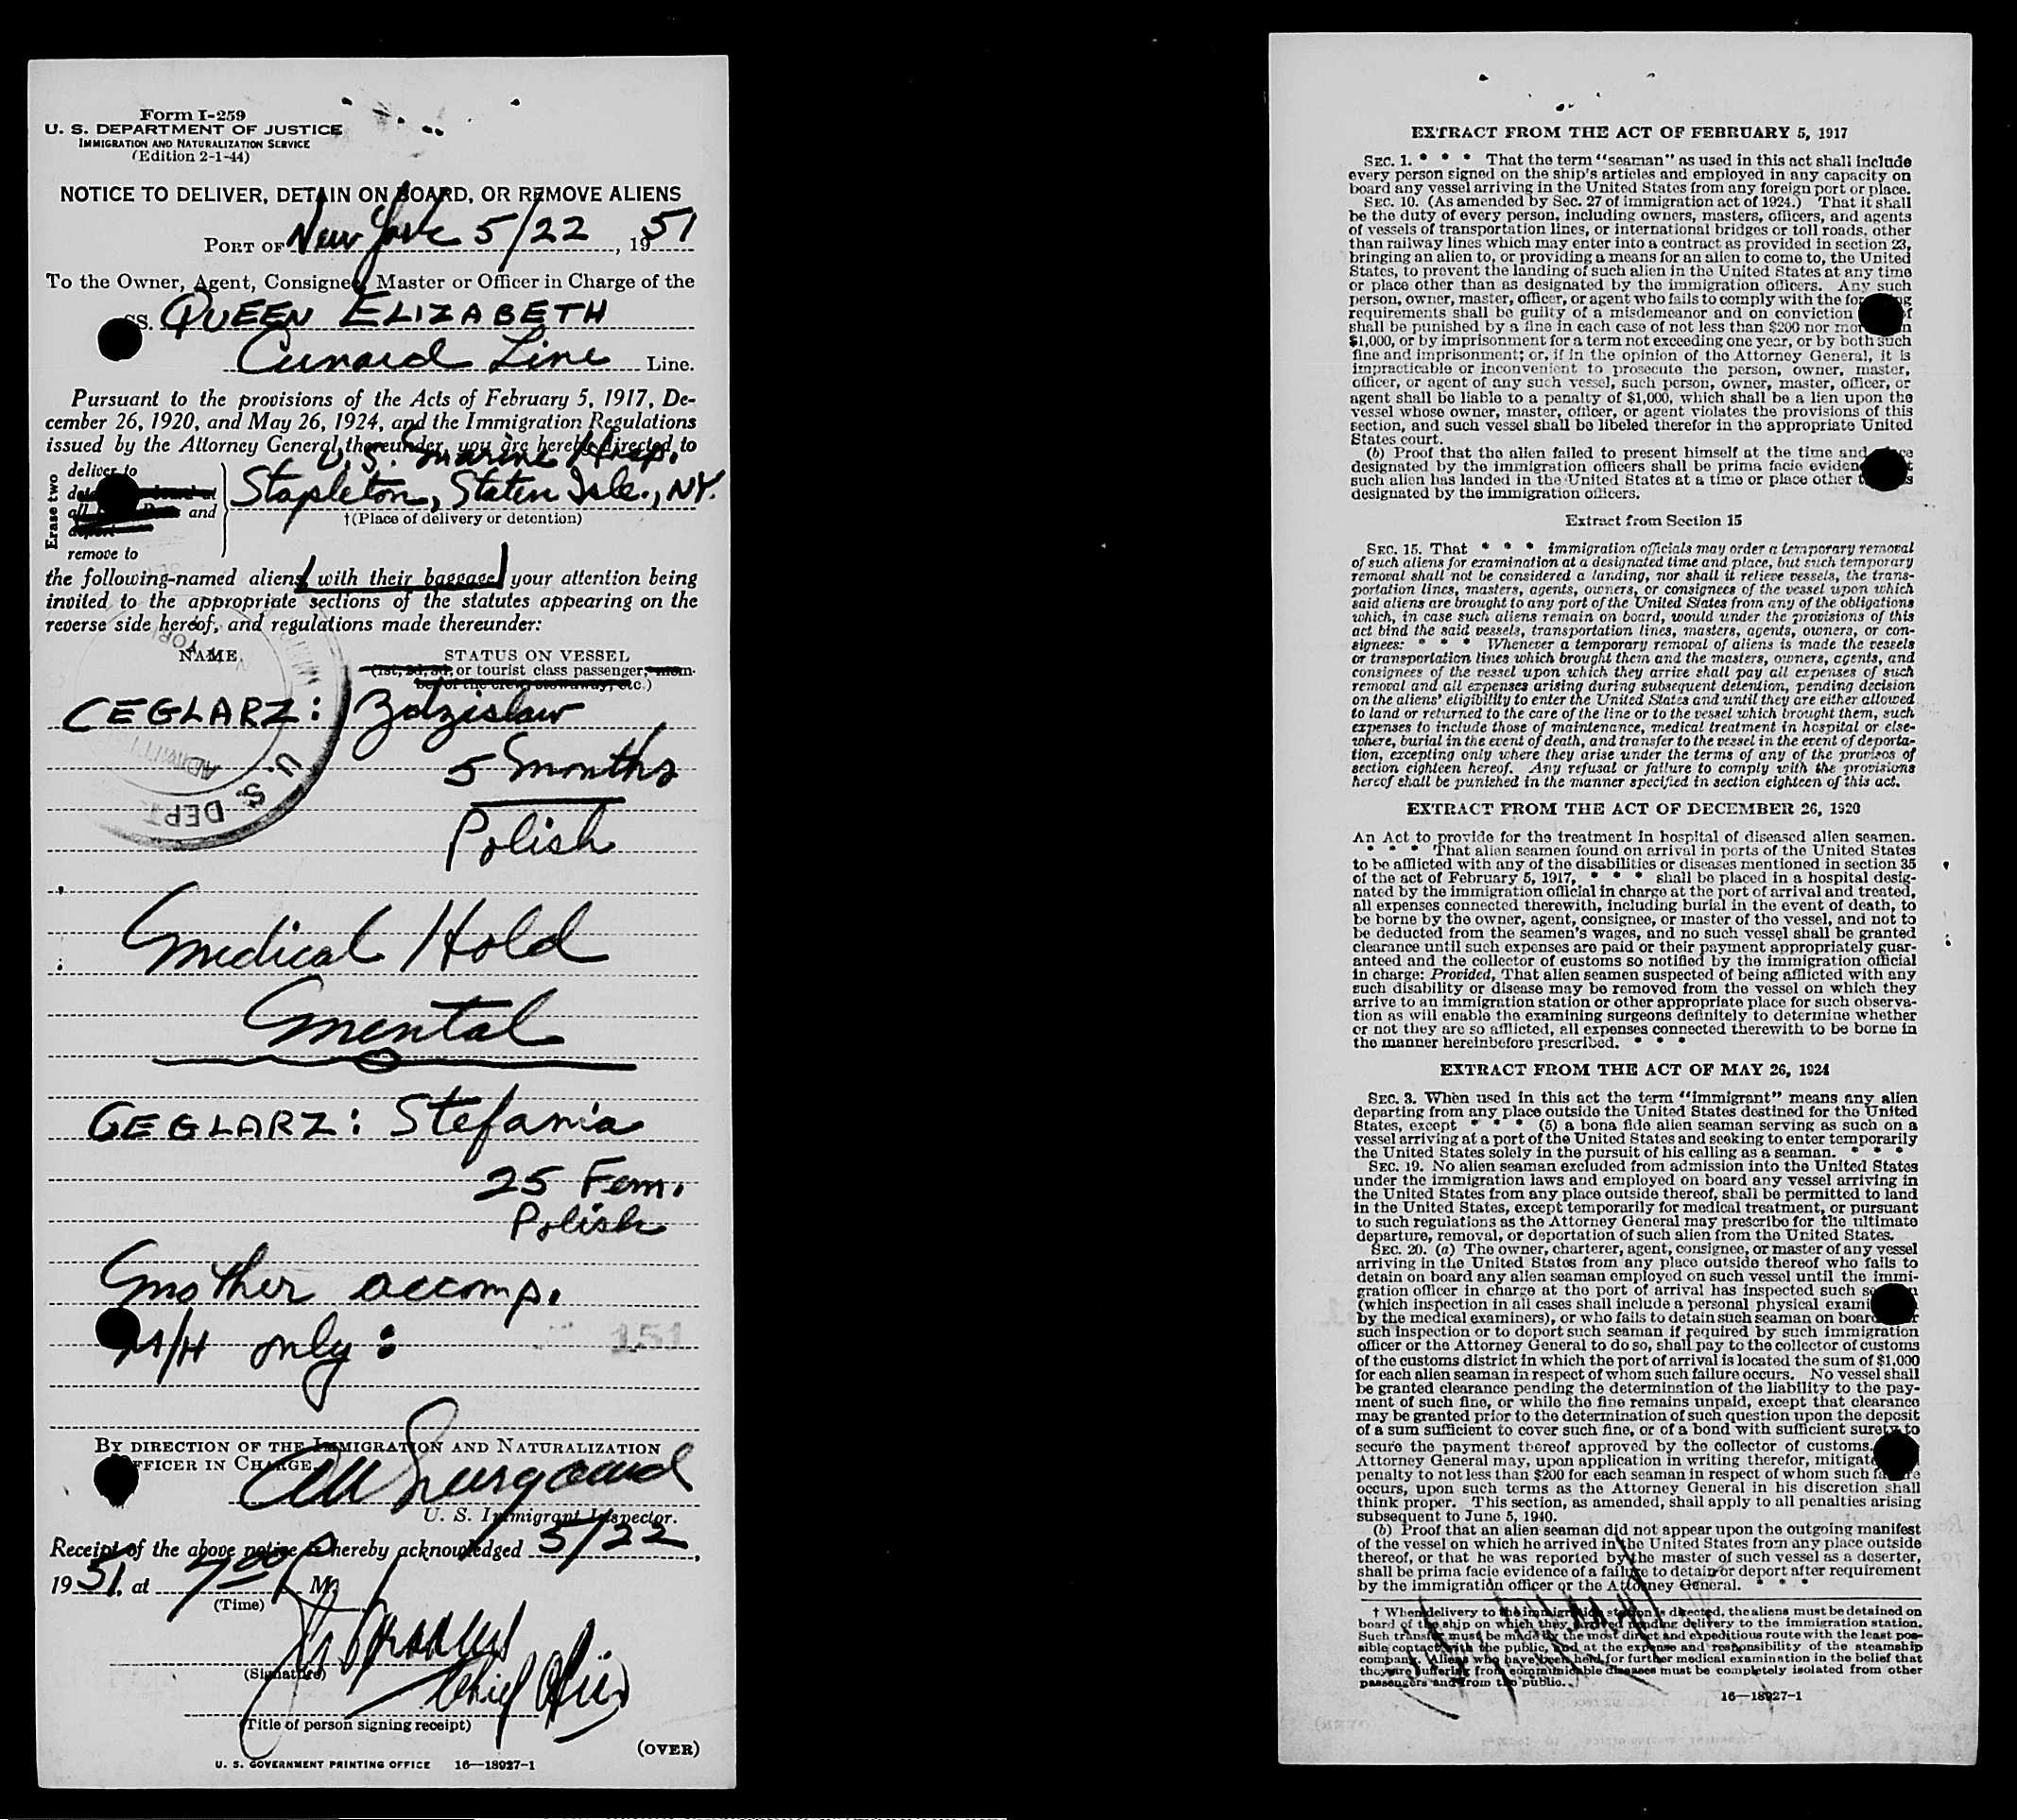 Form I-259
U. S. DEPARTMENT OF JUSTICE
IMMIGRATION AND NATURALIZATION SERVICE
(Edition 2-1-44)
NOTICE TO DELIVER, DETAIN ON BOARD, OR REMOVE ALIENS
PORT OF New York 5/22, 1951
To the Owner, Agent, Consignee, Master or Officer in Charge of the
SS. QUEEN ELIZABETH
Cunard Line Line.
Pursuant to the provisions of the Acts of February 5, 1917, De-
cember 26, 1920, and May 26, 1924, and the Immigration Regulations
issued by the Attorney General thereunder, you are hereby directed to
U. S. Marine Hosp.
Erase two
deliver to
and
remove to
Stapleton, Staten Isle., NY.
†(Place of delivery or detention)
the following-named aliens with their baggage your attention being
invited to the appropriate sections of the statutes appearing on the
reverse side hereof, and regulations made thereunder:
NAME STATUS ON VESSEL
(1st, 2d, 3d, or tourist class passenger, mem-
ber of the crew, stowaway, etc.)
CEGLARZ: Zdzislaw
5 months
Polish
ADMITT
U. S. DEPT
Medical Hold
Mental
CEGLARZ: Stefania
25 Fem.
Polish
Mother accomp.
M/H only:
151
BY DIRECTION OF THE IMMIGRATION AND NATURALIZATION
OFFICER IN CHARGE.
U. S. Immigrant Inspector.
Receipt of the above notice is hereby acknowledged 5/22,
1951, at 7 00 P M.
(Time)
(Signature)
Chief
(Title of person signing receipt)
(OVER)
U. S. GOVERNMENT PRINTING OFFICE 16—18927-1
EXTRACT FROM THE ACT OF FEBRUARY 5, 1917
SEC. 1. * * * That the term "seaman" as used in this act shall include
every person signed on the ship's articles and employed in any capacity on
board any vessel arriving in the United States from any foreign port or place.
SEC. 10. (As amended by Sec. 27 of immigration act of 1924.) That it shall
be the duty of every person, including owners, masters, officers, and agents
of vessels of transportation lines, or international bridges or toll roads, other
than railway lines which may enter into a contract as provided in section 23,
bringing an alien to, or providing a means for an alien to come to, the United
States, to prevent the landing of such alien in the United States at any time
or place other than as designated by the immigration officers. Any such
person, owner, master, officer, or agent who fails to comply with the foregoing
requirements shall be guilty of a misdemeanor and on conviction thereof
shall be punished by a fine in each case of not less than $200 nor more than
$1,000, or by imprisonment for a term not exceeding one year, or by both such
fine and imprisonment; or, if in the opinion of the Attorney General, it is
impracticable or inconvenient to prosecute the person, owner, master,
officer, or agent of any such vessel, such person, owner, master, officer, or
agent shall be liable to a penalty of $1,000, which shall be a lien upon the
vessel whose owner, master, officer, or agent violates the provisions of this
section, and such vessel shall be libeled therefor in the appropriate United
States court.
(b) Proof that the alien failed to present himself at the time and place
designated by the immigration officers shall be prima facie evidence that
such alien has landed in the United States at a time or place other than as
designated by the immigration officers.
Extract from Section 15
SEC. 15. That * * * immigration officials may order a temporary removal
of such aliens for examination at a designated time and place, but such temporary
removal shall not be considered a landing, nor shall it relieve vessels, the trans-
portation lines, masters, agents, owners, or consignees of the vessel upon which
said aliens are brought to any port of the United States from any of the obligations
which, in case such aliens remain on board, would under the provisions of this
act bind the said vessels, transportation lines, masters, agents, owners, or con-
signees: * * * Whenever a temporary removal of aliens is made the vessels
or transportation lines which brought them and the masters, owners, agents, and
consignees of the vessel upon which they arrive shall pay all expenses of such
removal and all expenses arising during subsequent detention, pending decision
on the aliens' eligibility to enter the United States and until they are either allowed
to land or returned to the care of the line or to the vessel which brought them, such
expenses to include those of maintenance, medical treatment in hospital or else-
where, burial in the event of death, and transfer to the vessel in the event of deporta-
tion, excepting only where they arise under the terms of any of the provisos of
section eighteen hereof. Any refusal or failure to comply with the provisions
hereof shall be punished in the manner specified in section eighteen of this act.
EXTRACT FROM THE ACT OF DECEMBER 26, 1920
An Act to provide for the treatment in hospital of diseased alien seamen.
* * * That alien seamen found on arrival in ports of the United States
to be afflicted with any of the disabilities or diseases mentioned in section 35
of the act of February 5, 1917, * * * shall be placed in a hospital desig-
nated by the immigration official in charge at the port of arrival and treated,
all expenses connected therewith, including burial in the event of death, to
be borne by the owner, agent, consignee, or master of the vessel, and not to
be deducted from the seamen's wages, and no such vessel shall be granted
clearance until such expenses are paid or their payment appropriately guar-
anteed and the collector of customs so notified by the immigration official
in charge: Provided, That alien seamen suspected of being afflicted with any
such disability or disease may be removed from the vessel on which they
arrive to an immigration station or other appropriate place for such observa-
tion as will enable the examining surgeons definitely to determine whether
or not they are so afflicted, all expenses connected therewith to be borne in
the manner hereinbefore prescribed. * * *
EXTRACT FROM THE ACT OF MAY 26, 1924
SEC. 3. When used in this act the term "immigrant" means any alien
departing from any place outside the United States destined for the United
States, except * * * (5) a bona fide alien seaman serving as such on a
vessel arriving at a port of the United States and seeking to enter temporarily
the United States solely in the pursuit of his calling as a seaman. * * *
SEC. 19. No alien seaman excluded from admission into the United States
under the immigration laws and employed on board any vessel arriving in
the United States from any place outside thereof, shall be permitted to land
in the United States, except temporarily for medical treatment, or pursuant
to such regulations as the Attorney General may prescribe for the ultimate
departure, removal, or deportation of such alien from the United States.
SEC. 20. (a) The owner, charterer, agent, consignee, or master of any vessel
arriving in the United States from any place outside thereof who fails to
detain on board any alien seaman employed on such vessel until the immi-
gration officer in charge at the port of arrival has inspected such seaman
(which inspection in all cases shall include a personal physical examination
by the medical examiners), or who fails to detain such seaman on board after
such inspection or to deport such seaman if required by such immigration
officer or the Attorney General to do so, shall pay to the collector of customs
of the customs district in which the port of arrival is located the sum of $1,000
for each alien seaman in respect of whom such failure occurs. No vessel shall
be granted clearance pending the determination of the liability to the pay-
ment of such fine, or while the fine remains unpaid, except that clearance
may be granted prior to the determination of such question upon the deposit
of a sum sufficient to cover such fine, or of a bond with sufficient surety to
secure the payment thereof approved by the collector of customs.
Attorney General may, upon application in writing therefor, mitigate
penalty to not less than $200 for each seaman in respect of whom such failure
occurs, upon such terms as the Attorney General in his discretion shall
think proper. This section, as amended, shall apply to all penalties arising
subsequent to June 5, 1940.
(b) Proof that an alien seaman did not appear upon the outgoing manifest
of the vessel on which he arrived in the United States from any place outside
thereof, or that he was reported by the master of such vessel as a deserter,
shall be prima facie evidence of a failure to detain or deport after requirement
by the immigration officer or the Attorney General. * * *
† When delivery to the immigration station is directed, the aliens must be detained on
board of the ship on which they arrived pending delivery to the immigration station.
Such transfer must be made by the most direct and expeditious route with the least pos-
sible contact with the public, and at the expense and responsibility of the steamship
company. Aliens who have been held for further medical examination in the belief that
they are suffering from communicable diseases must be completely isolated from other
passengers and from the public.
16—18927-1